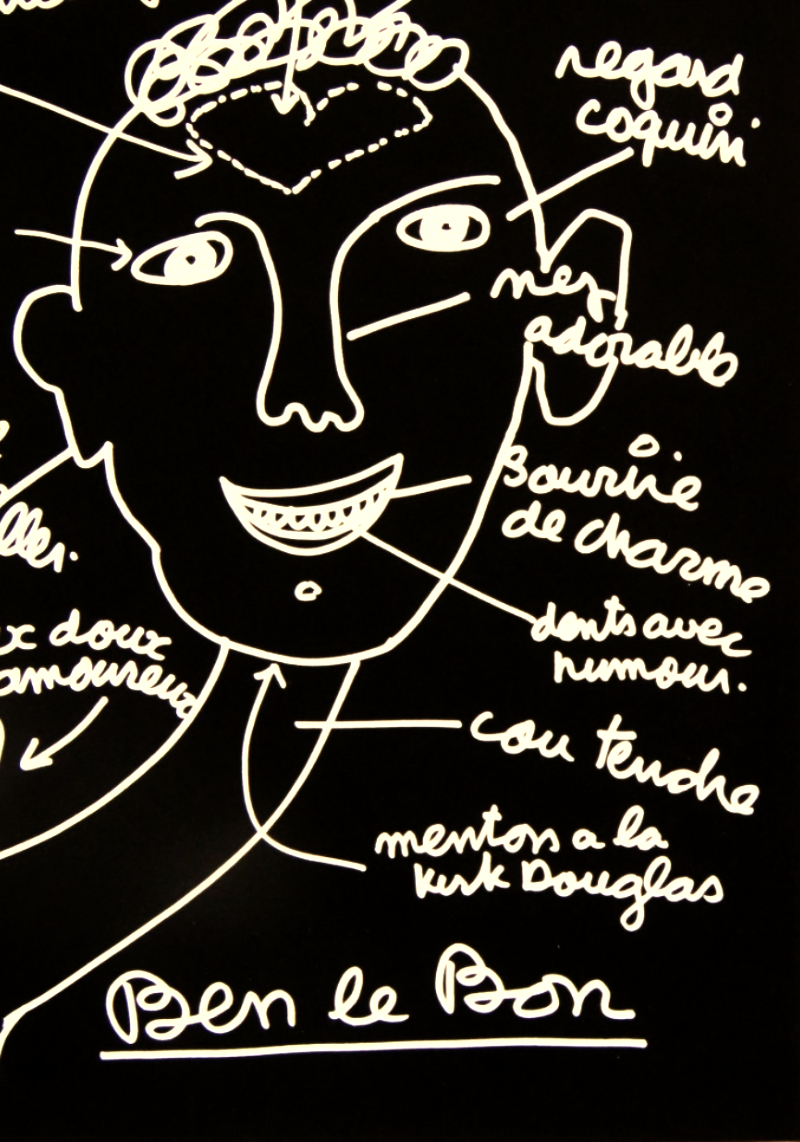 regard
coquin
nez
adorable
Sourire
de charme
lles.
x doux
amoureux
dents avec
humour.
cou tendre
menton a la
Kirk Douglas
Ben le Bon